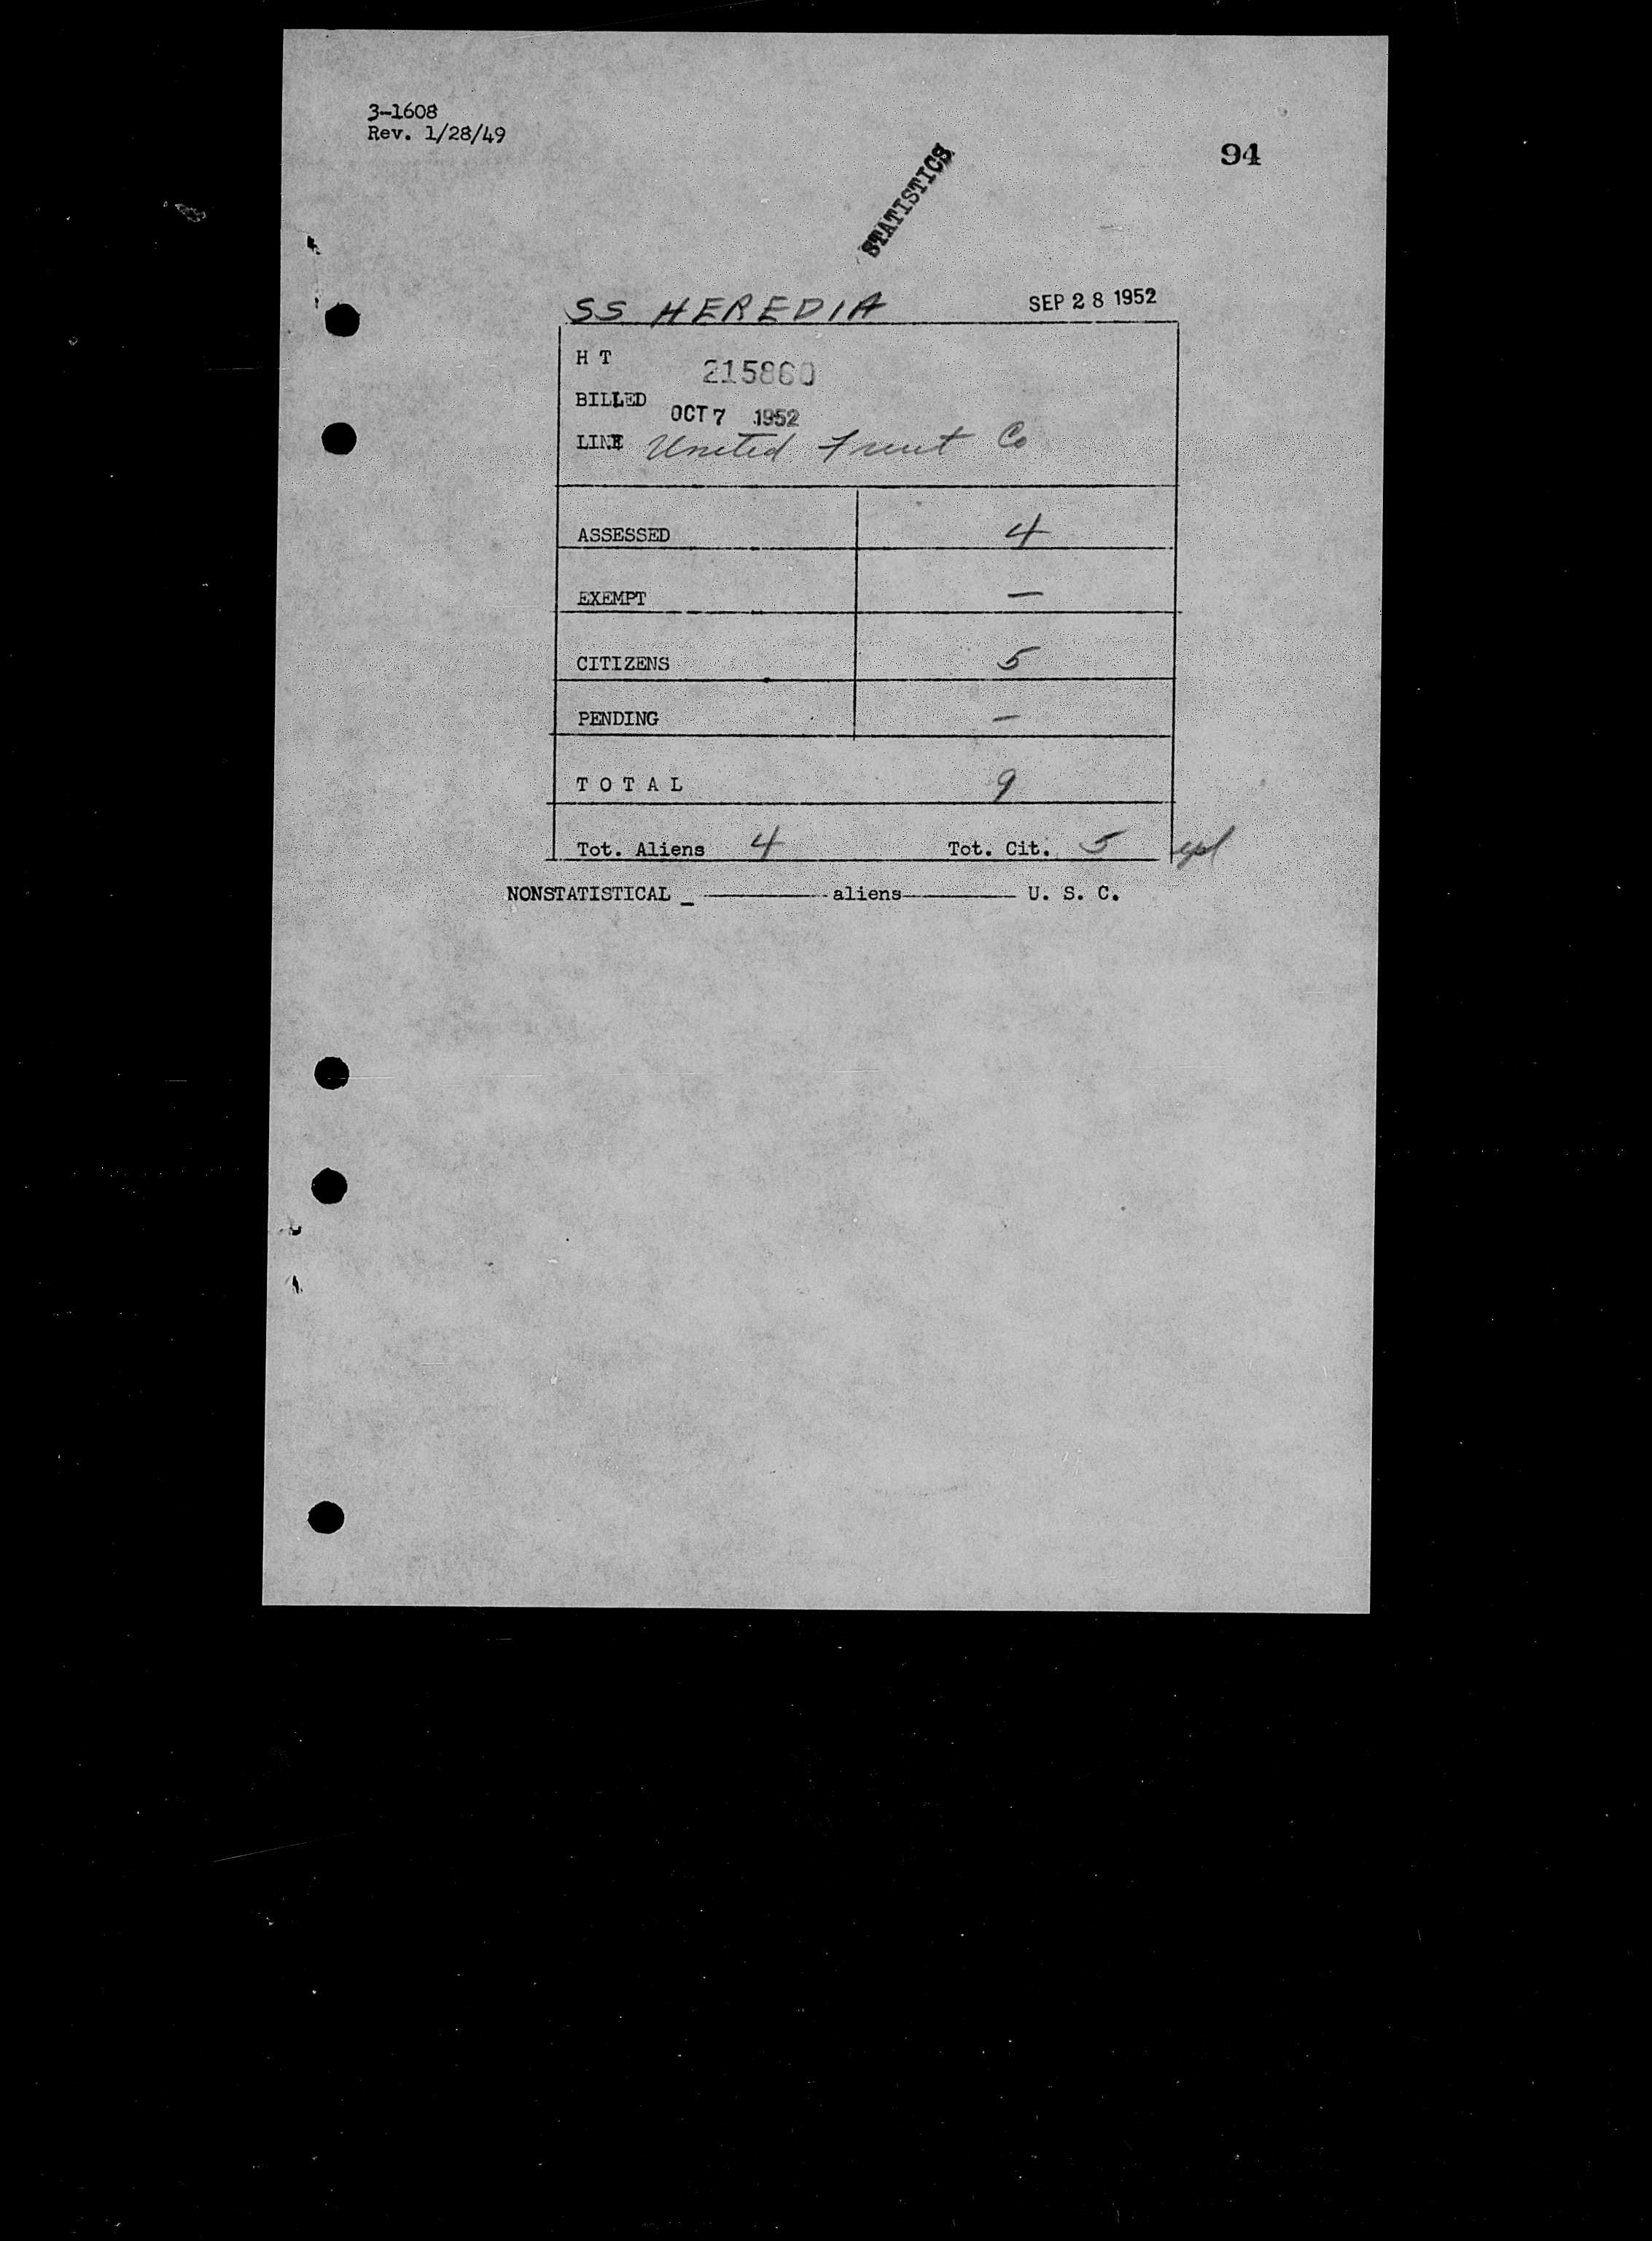 3-1608
Rev. 1/28/49
94
STATISTICS
SS HEREDIA SEP 28 1952
H T 215860
BILLED OCT 7 1952
LINE United Fruit Co
ASSESSED 4
EXEMPT —
CITIZENS 5
PENDING —
T O T A L 9
Tot. Aliens 4 Tot. Cit. 5
NONSTATISTICAL _ ———— aliens ———— U. S. C.